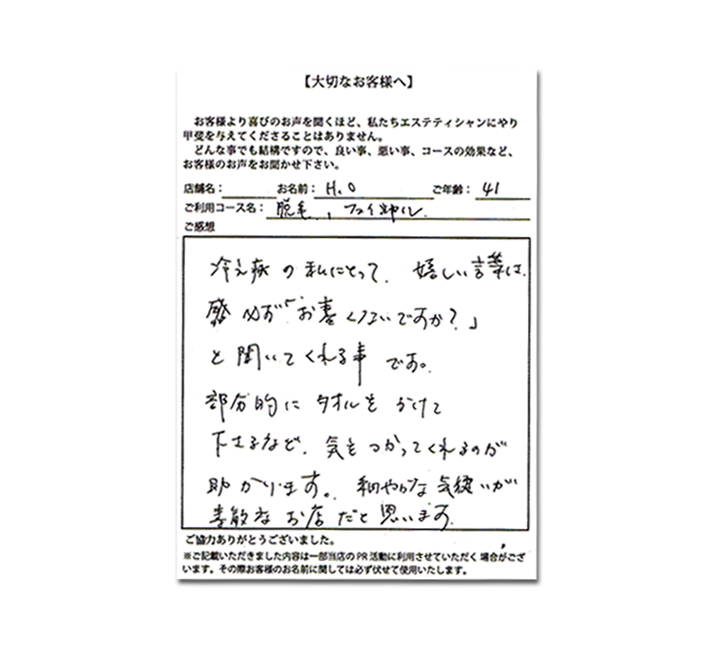 【大切なお客様へ】
お客様より喜びのお声を聞くほど、私たちエステティシャンにやり
甲斐を与えてくださることはありません。
どんな事でも結構ですので、良い事、悪い事、コースの効果など、
お客様のお声をお聞かせ下さい。
店舗名： お名前： H.O ご年齢： 41
ご利用コース名： 脱毛、フェイシャル
ご感想
冷え症の私にとって、嬉しい言葉は、
必ず「お寒くないですか？」
と聞いてくれる事です。
部分的にタオルをかけて
下さるなど、気をつかってくれるのが
助かります。細やかな気遣いが
素敵なお店だと思います。
ご協力ありがとうございました。
※ご記載いただきました内容は一部当店のPR活動に利用させていただく場合がござ
います。その際お客様のお名前に関しては必ず伏せて使用いたします。